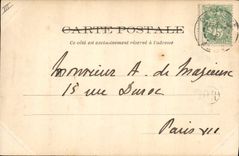 CARTE POSTALE
Ce côté est exclusivement réservé à l'adresse
Monsieur A. de Mazieux
15 rue Duroc
Paris VII